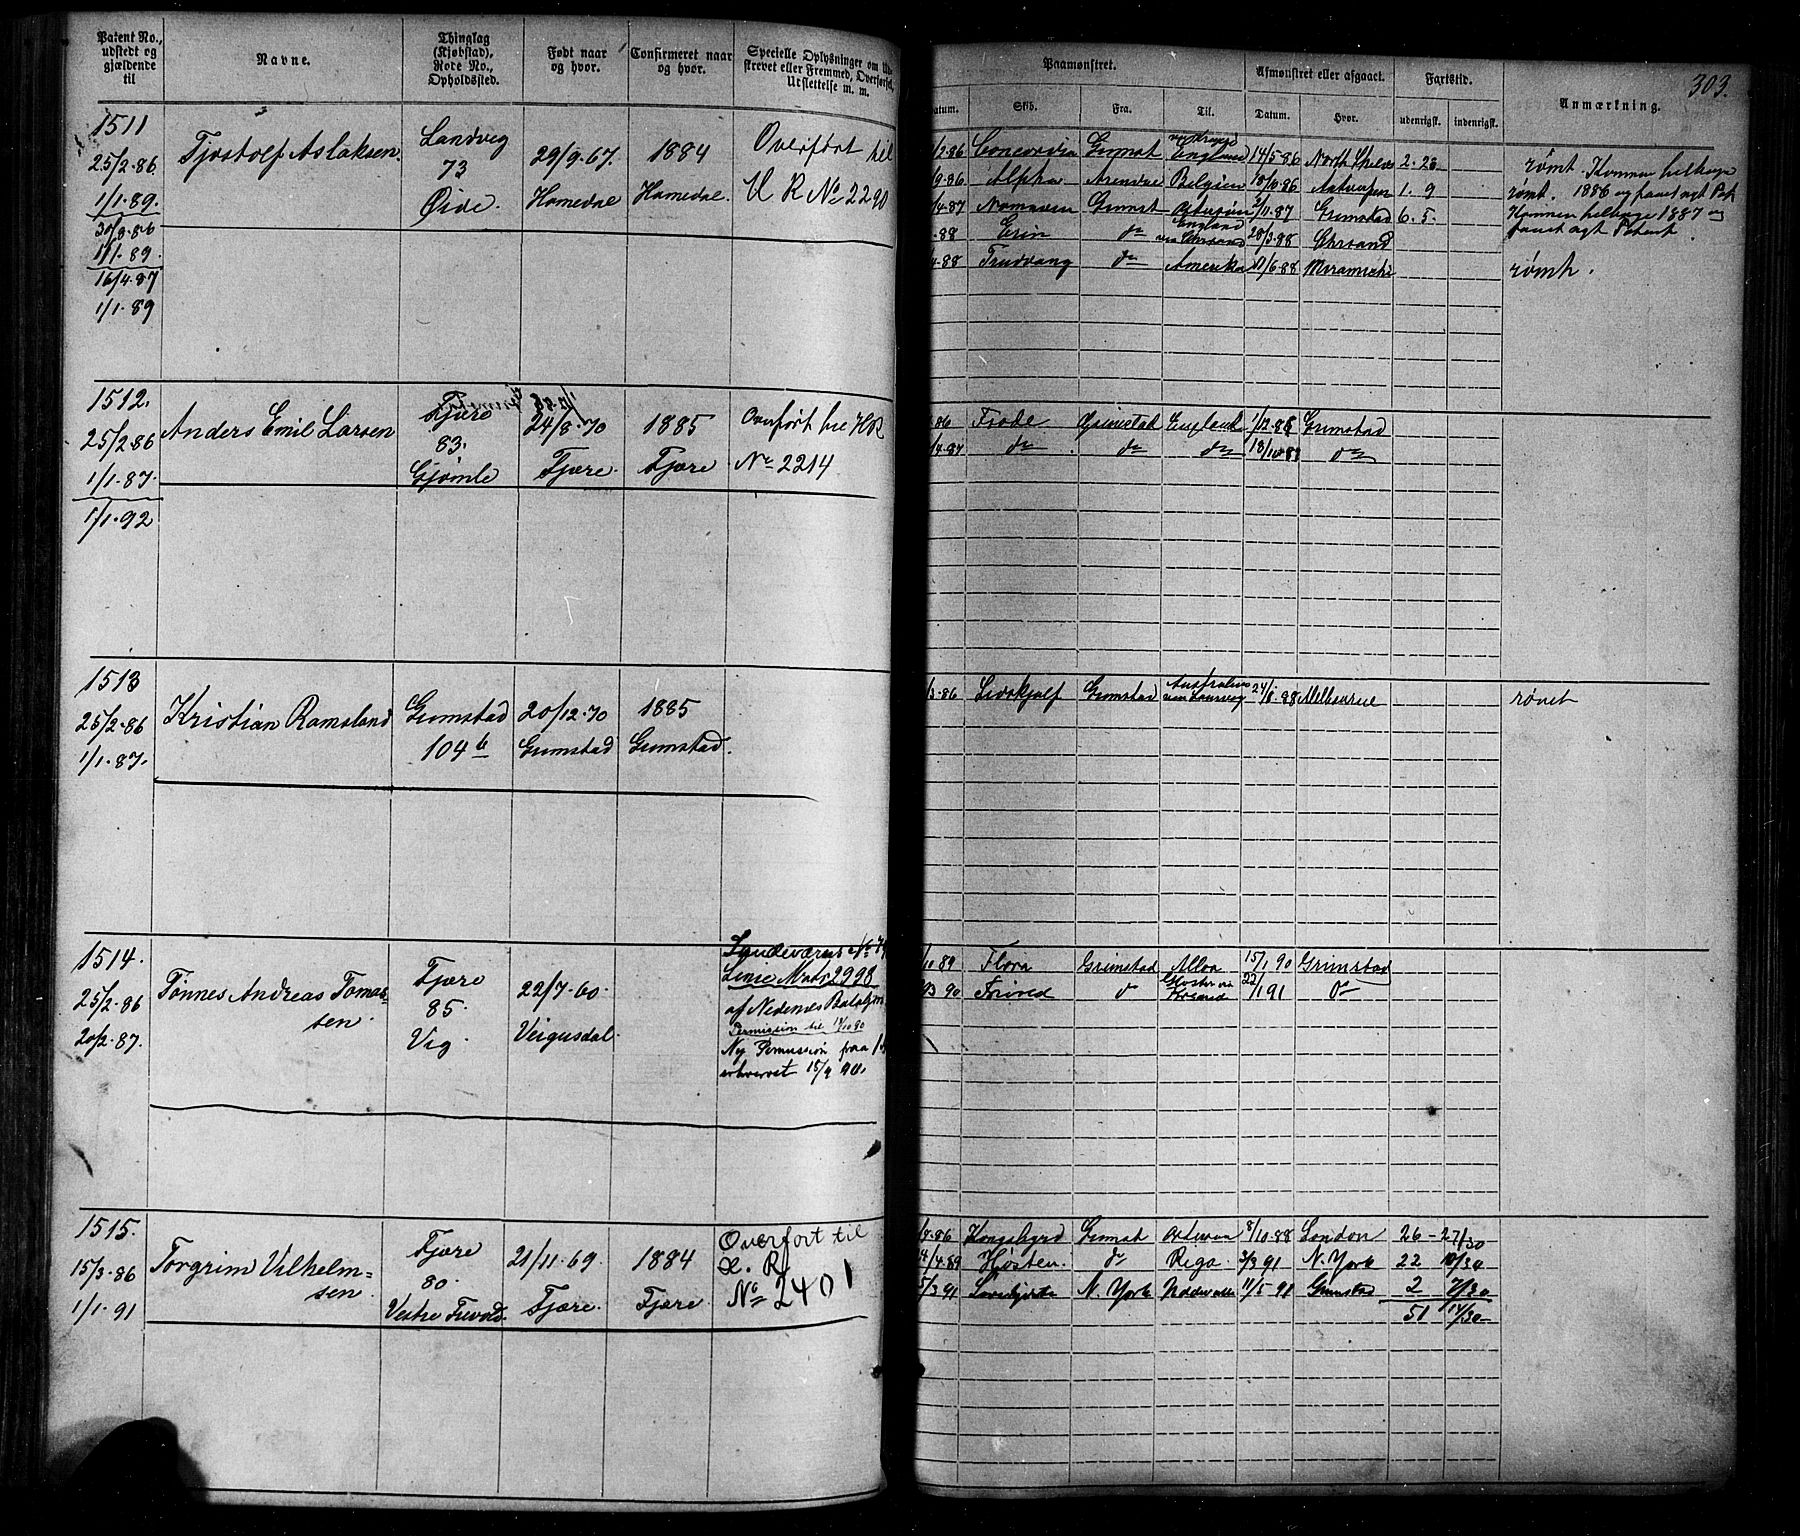 303.
Patent No., udstedt og gjældende til
Navne.
Thinglag (Kjøbstad), Rode No., Opholdssted.
Født naar og hvor.
Confirmeret naar og hvor.
Specielle Oplysninger om
strevet eller Fremmed, Overførsel,
Udslettelse m. m.
Paamønstret.
Afmønstret eller afgaaet.
Fartstid.
Anmærkning.
Datum. Skib. Fra. Til. Datum. Hvor. udenrigsk. indenrigsk.
1511
25/2-86
1/1-89.
30/8-86
1/1-89.
16/4-87
1/1-89
Tjøstolf Aslaksen.
Landvig
73
Øide.
29/9-67
Homedal
1884
Homedal.
Overført til
H R No 2290
/2-86 Concordia Grimst England 14/5-86 North Shields 2-23
/9-86 Alpha Arendal Belgien 18/10-86 Antwerpen 1-9
/4-87 Grimst /11-87 Grimstad 6-5-
-88 Erin do England via Chrsand 28/3-88 Chrsand
4-88 Trudvang do Amerika /6-88 Miramichi
rømt. Kommen tilbage
1886 og faaet nyt Pat
rømt.
Kommen tilbage 1887 og
faaet nyt Patent
rømt.
1512.
25/2-86
1/1-87.
1/1-92
Anders Emil Larsen
Fjære
83.
Gjømle
24/8-70
Fjære.
1885
Fjære
Overført til HR
No 2214
-86 Frode Grimstad England 1/12-86 Grimstad
/4-87 do do do do
1513
25/2-86
1/1-87.
Kristian Ramsland
Grimstad
104 b
20/12-70
Grimstad
1885
Grimstad.
/3-86 Lidskjalf Grimstad Australien via Laurvig 24/ -88 Melbourne
rømt
1514.
25/2-86
20/2-87.
Tønnes Andreas Tomas=
sen.
Fjære
85.
Vig.
22/7-60.
Veigusdal.
Linie Matr 2998
af Nedenes Bataljon
Permission til
Ny Permission fraa
erhvervet 15/9 90.
/10 89 Flora Grimstad Alloa 15/1 90 Grimstad
/3 90 do 22/1 91 do
1515.
15/3-86
1/1-91
Torgrim Vilhelm=
sen.
Fjære
80.
Vestre
21/11-69
Fjære.
1884
Fjære.
Overført til
H. R.
No 2401
-86 Grimst 8/10-88 London 26 - 27/30
/4-89 Høsten. do Riga 3/3 91 N. York 22
5/3 91 N. York 11/5-91 Grimstad 2
51 14/30